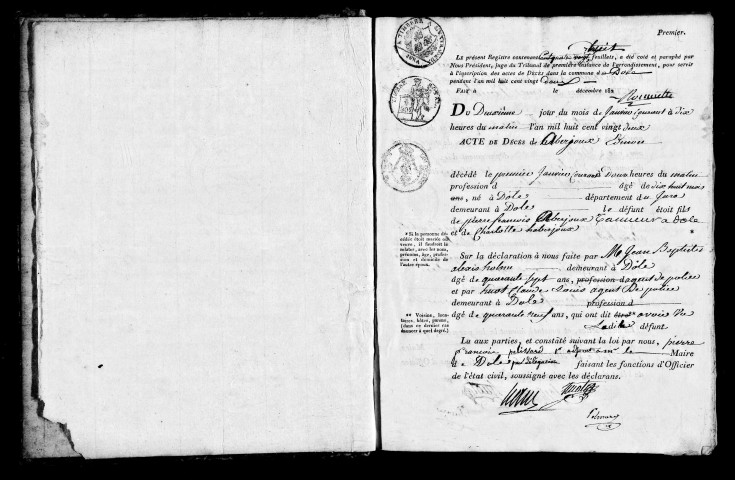 Premier.
Le présent Registre contenant feuillets, a été coté et paraphé par
Nous Président, Juge du Tribunal de première instance de l'arrondissement, pour servir
à l'inscription des actes de Décès dans la commune d Dole
pendant l'an mil huit cent vingt deux
Fait à le décembre 182
Du Deuxième jour du mois de Janvier courant à dix
heures du matin l'an mil huit cent vingt deux
ACTE DE DÉCÈS de Aberjoux Simon
décédé le premier Janvier courant à Douze heures du matin
profession d âgé de dix huit mois
ans, né à Dole département du Jura
demeurant à Dole le défunt étoit fils
de pierre francois Aberjoux Tanneur a Dole
et de Charlotte
* Si la personne dé-
cédée étoit mariée ou
veuve, il faudrait le
relater, avec les nom,
prénom, âge, profes-
sion et domicile de
l'autre époux.
Sur la déclaration à nous faite par Mr Jean Baptiste
alexis demeurant à Dole
âgé de quarante sept ans, profession d agent de police
et par huot Claude Louis agent De police
demeurant à Dole profession d
âgé de quarante neuf ans, qui ont dit avoir vu
Ledit défunt
** Voisins, boulangers, hôtes, parens,
(dans ce dernier cas
énoncer à quel degré.)
Lu aux parties, et constaté suivant la loi par nous, pierre
francois 1er adjoint a mr le Maire
de Dole par délégation faisant les fonctions d'Officier
de l'état civil, soussigné avec les déclarans.
huot